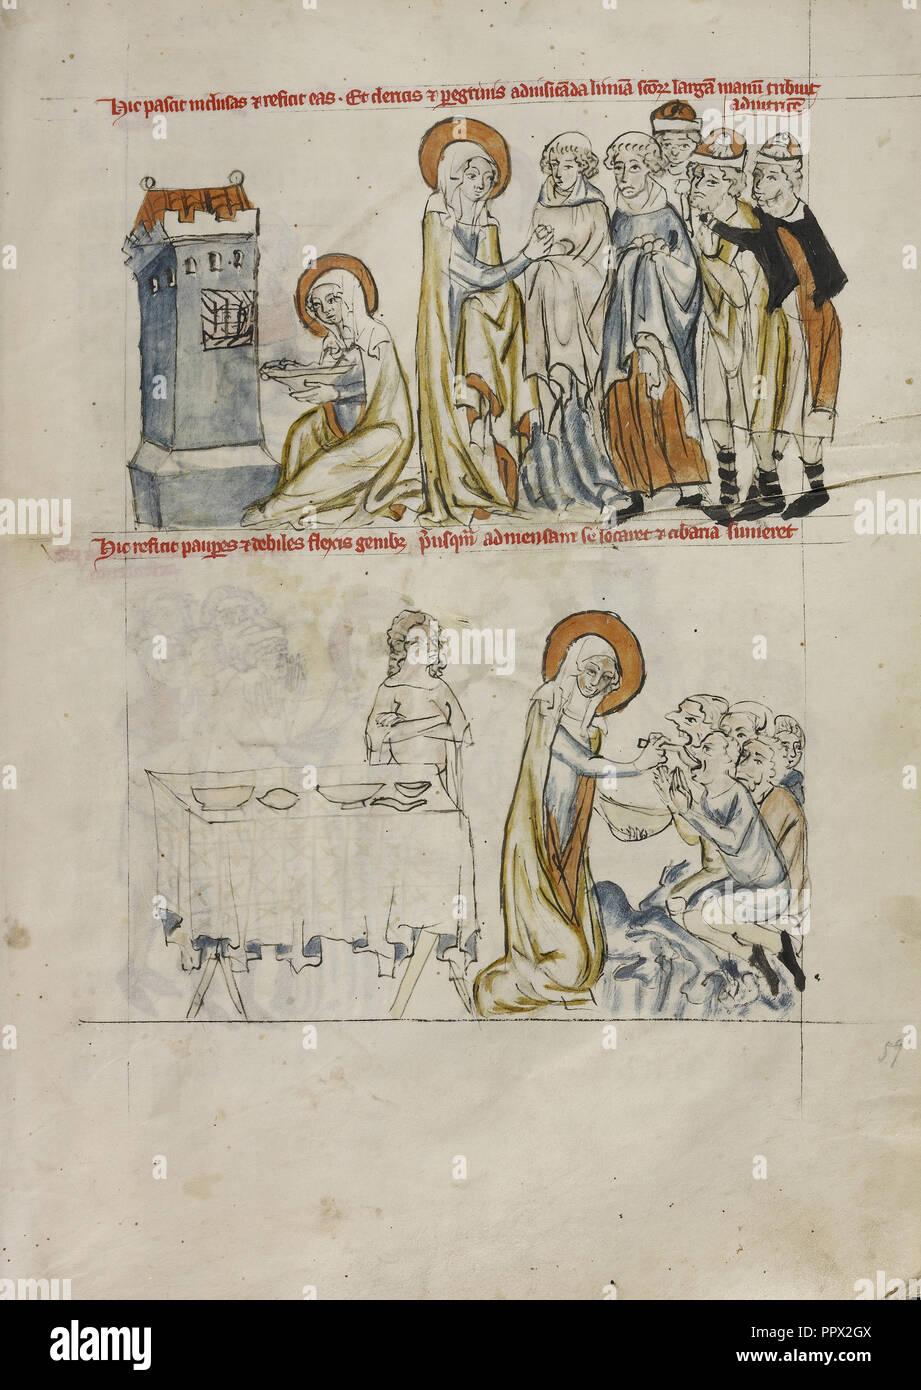 Hic pascit inclusas ⁊ reficit eas. Et clericis ⁊ pegrinis ad uisitāda limīa scōr largā manū tribuit
adiutricē
Hic reficit paupes ⁊ debiles flexis genibȝ p̄usqm̄ ad mensam se locaret ⁊ cibaria sumeret
59
a
alamy stock photo
PPX2GX
Image ID: PPX2GX
www.alamy.com